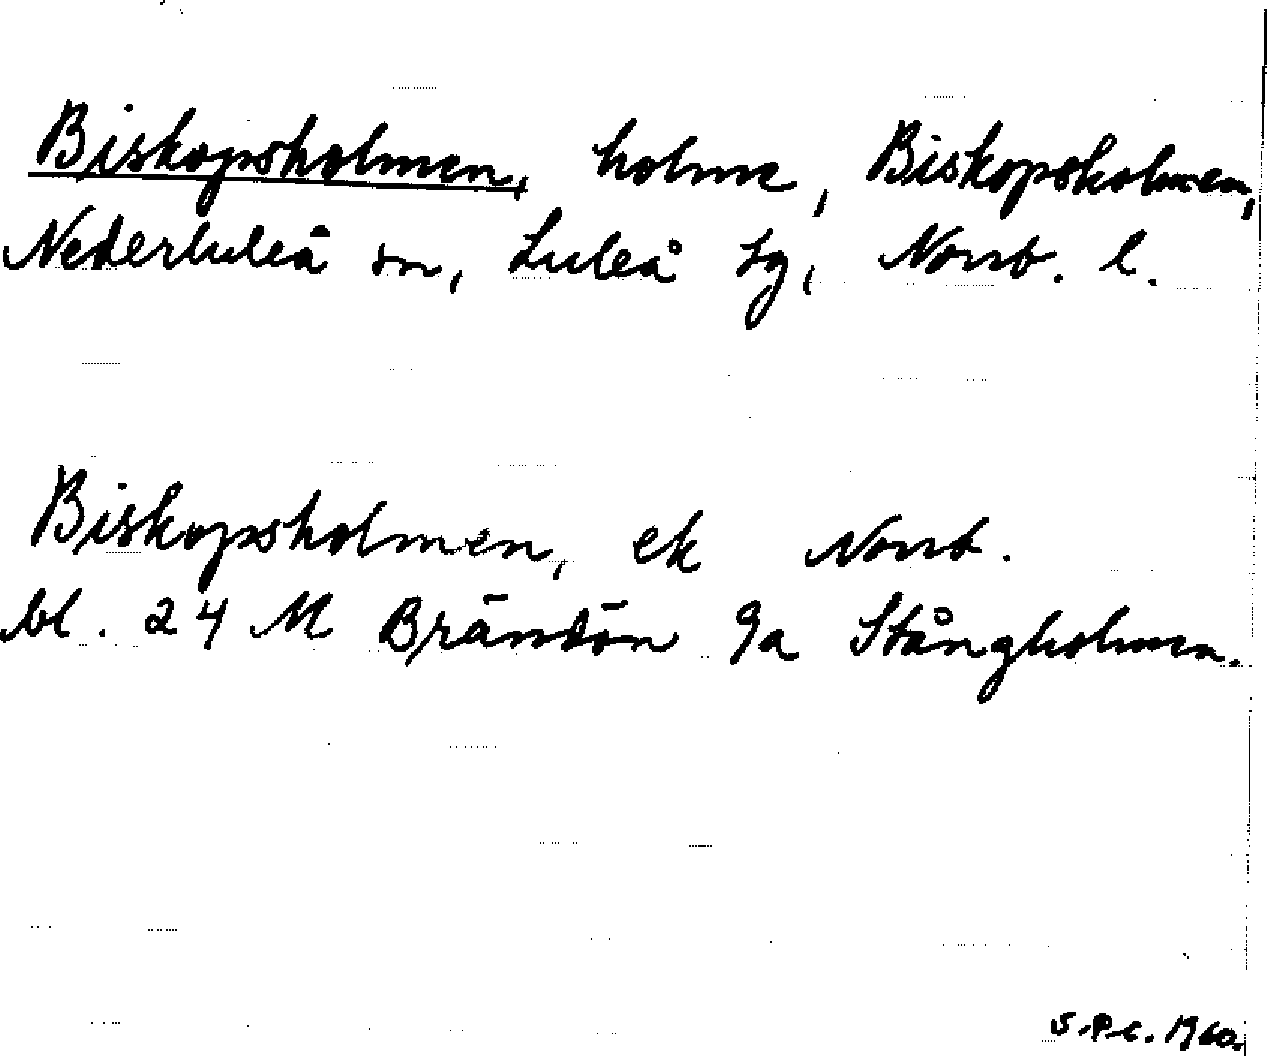 Biskopsholmen, holme, Biskopsholmen,
Nederluleå sn, Luleå tg, Norrb. l.
Biskopsholmen, ek Norrb.
bl. 24 M Brändön 9a Stångholmen.
S.P.C. 1960.